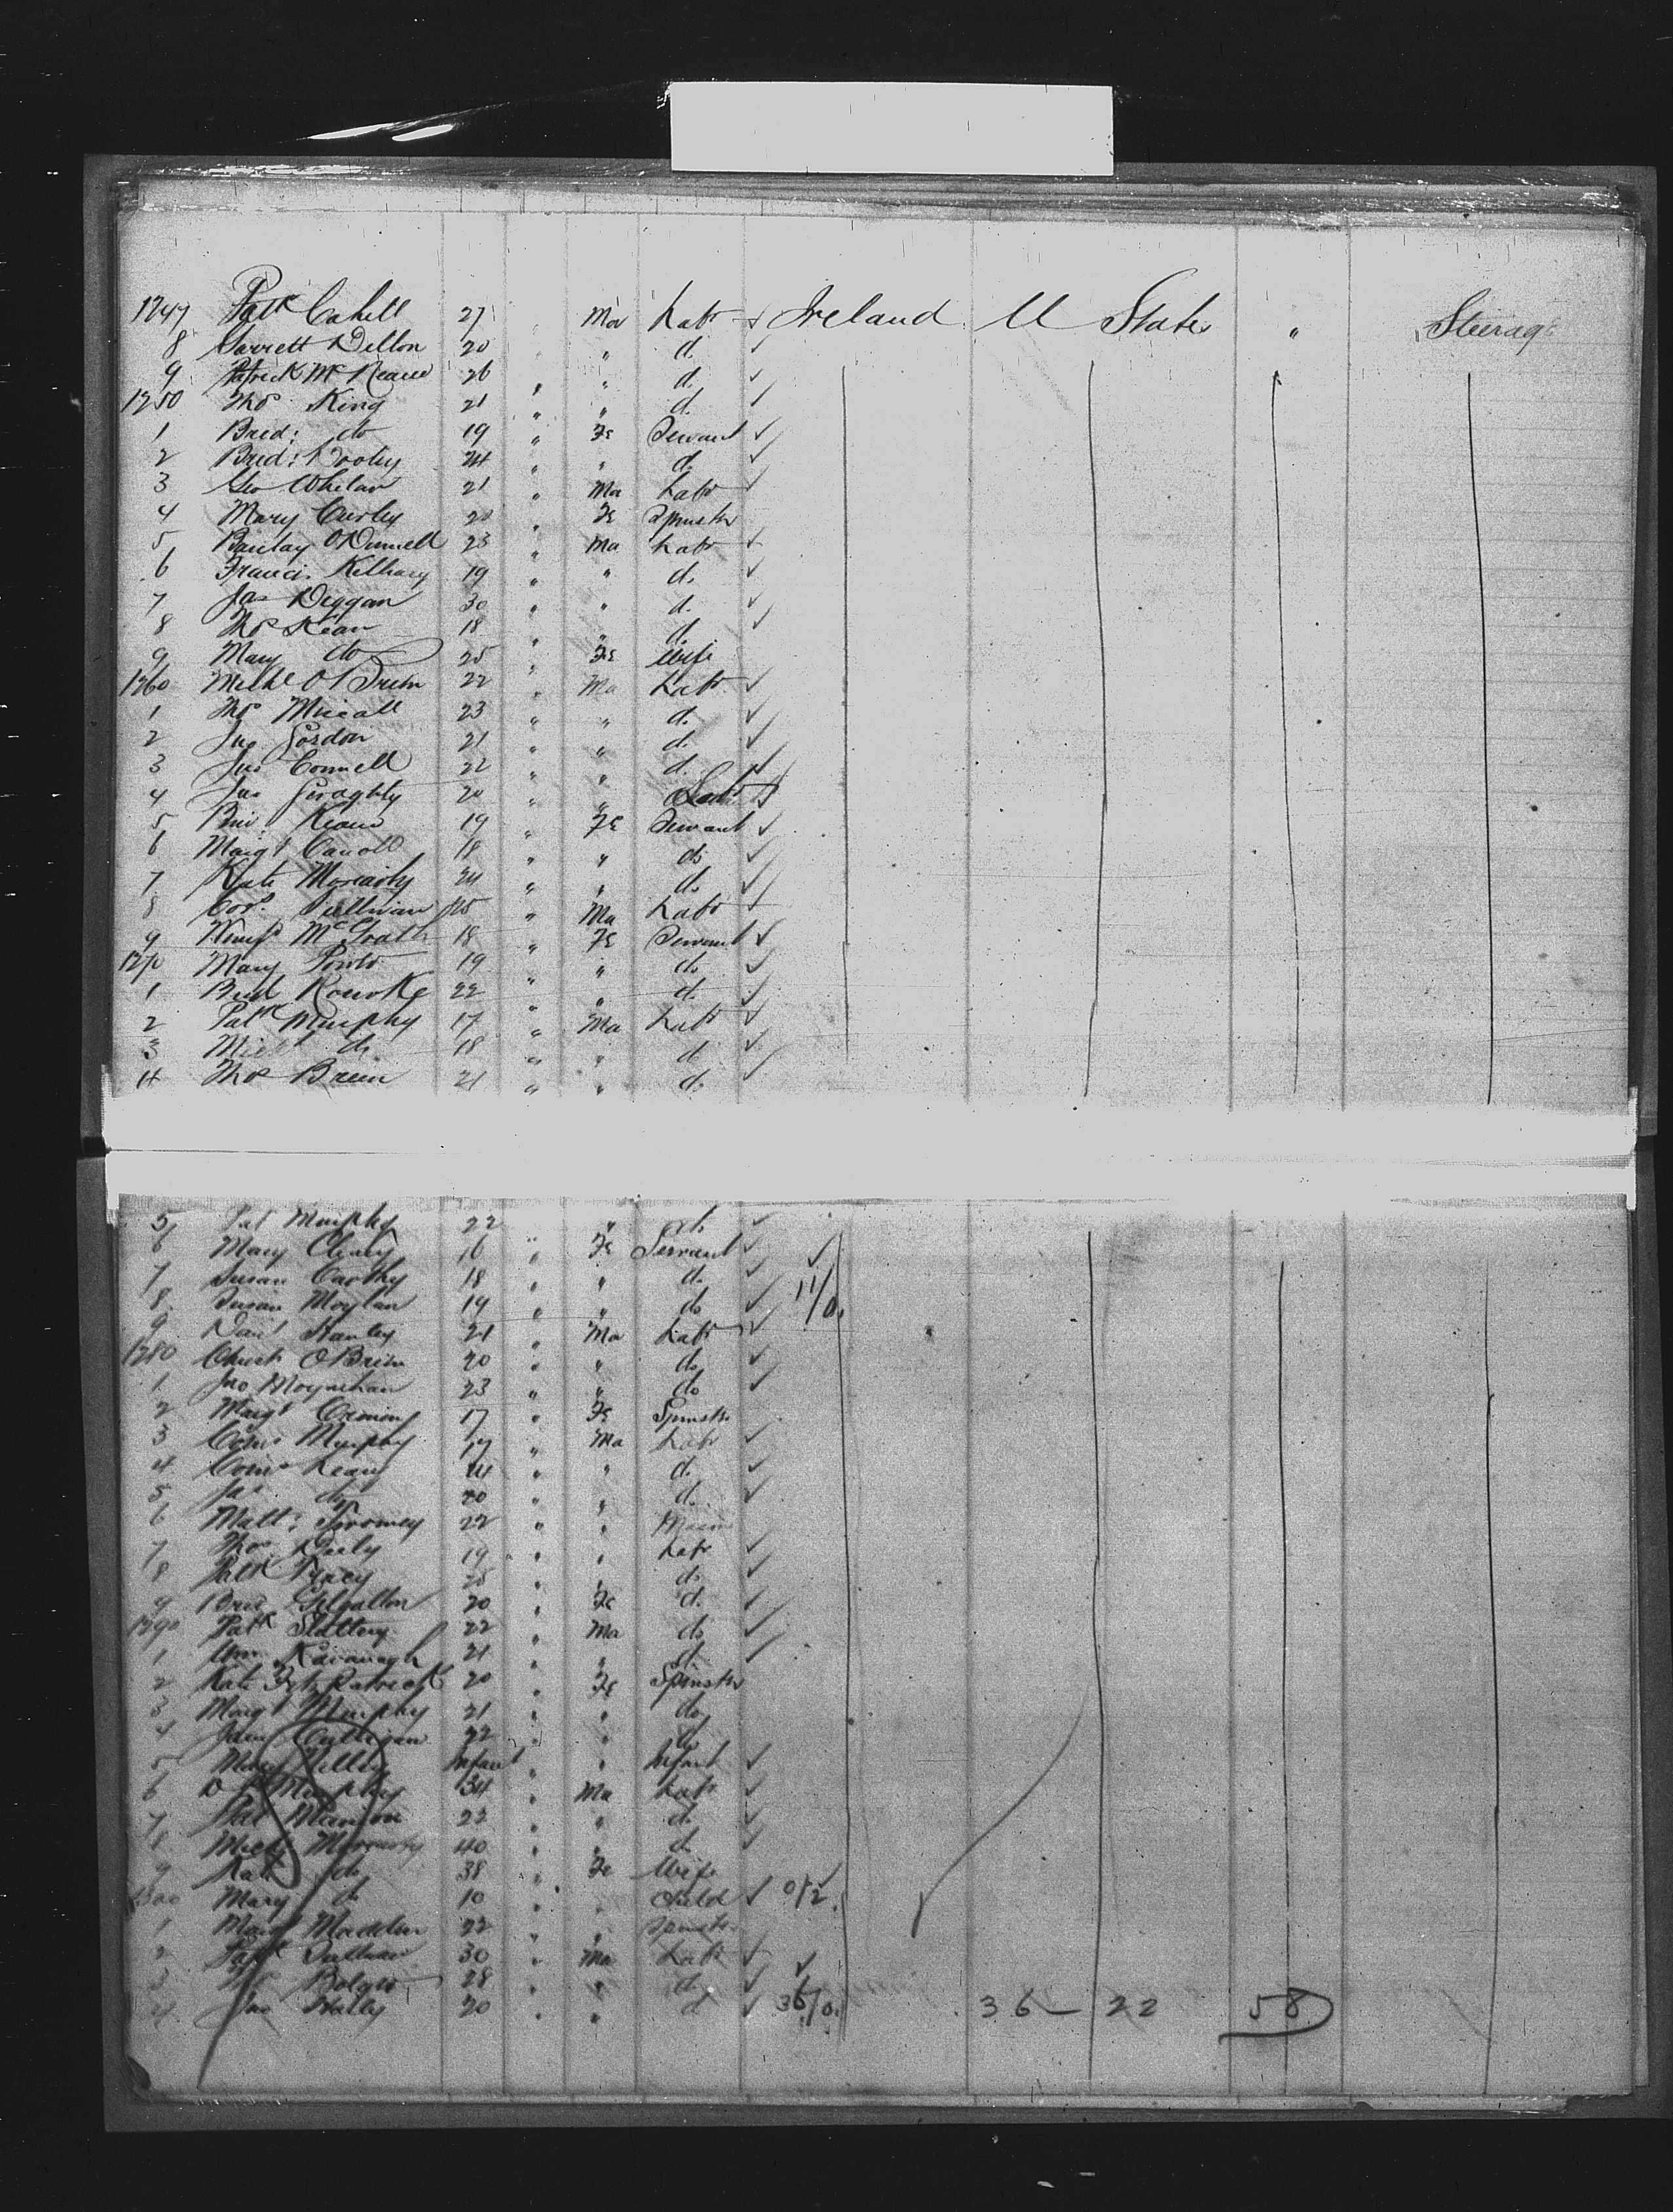 1247 Patk Cahill 27 Ma Labr Ireland U States " Steerag
8 Garrett Dillon 20 " " d.
9 Patrick Mc 26 " " d.
1250 Thos King 21 " " d.
1 Brid: do 19 " Fe Servant
2 Brid: 24 " " d.
3 Geo Whelan 21 " Ma Labr
4 Mary Curley 20 " Fe Spinstr
5 Barclay O'Donnell 23 " Ma Labr
6 Francis 19 " " d.
7 Jas Deggan 30 " " d.
8 Thos Kean 18 " " d.
9 Mary do 25 " Fe Wife
1260 Michl O'Brien 22 " Ma Labr
1 Thos 23 " " d.
2 Jno Gordon 21 " " d.
3 Jno Connell 22 " " d.
4 Jno Geraghty 20 " " Labr
5 Keane 19 " Fe Servant
6 Margt Carroll 18 " " do
7 Kate Moriarty 24 " " do
8 Cors. Sullivan 25 " Ma Labr
9 McGrath 18 " Fe Servant
1270 Mary Power 19 " " do
1 Brid Rourke 22 " " d.
2 Patk Murphy 17 " Ma Labr
3 Michl do 18 " " d.
4 Thos Breen 21 " " d.
5 Pat Murphy 22 " do
6 Mary Cleary 16 " Fe Servant
7 Susan Carthy 18 " " d. 11/0.
8 Susan Moylan 19 " " do
9 Danl 21 " Ma Labr
1280 O'Brien 20 " " do
1 Jno Moynihan 23 " " do
2 Margt 17 " Fe Spinstr
3 Corns Murphy 17 " Ma Labr
4 Corns Leary 24 " " d.
5 Jas do 20 " " d.
6 Matt: Twomey 22 " "
7 Thos Daly 19 " " Labr
8 Patk Tracy 25 " " do
9 Brid 20 " Fe d.
1290 Patk Slattery 22 " Ma do
1 Wm Kavanagh 21 " " d
2 Kate Fitzpatrick 20 " Fe Spinstr
3 Margt Murphy 21 " " do
4 Culligan 22 " " d
5 Mary Infant " " Infant
6 Murphy 34 " Ma Labr
7 Pat 22 " " d.
8 Moriarty 40 " " d.
9 Kate do 38 " Fe Wife
1300 Mary do 10 " " Child 0/2.
1 Madden 22 " " Spinstr
2 Patk Sullivan 30 " Ma Labr
3 Bolger 28 " " d.
4 Jno 20 " " d 36/0. 36 — 22 58